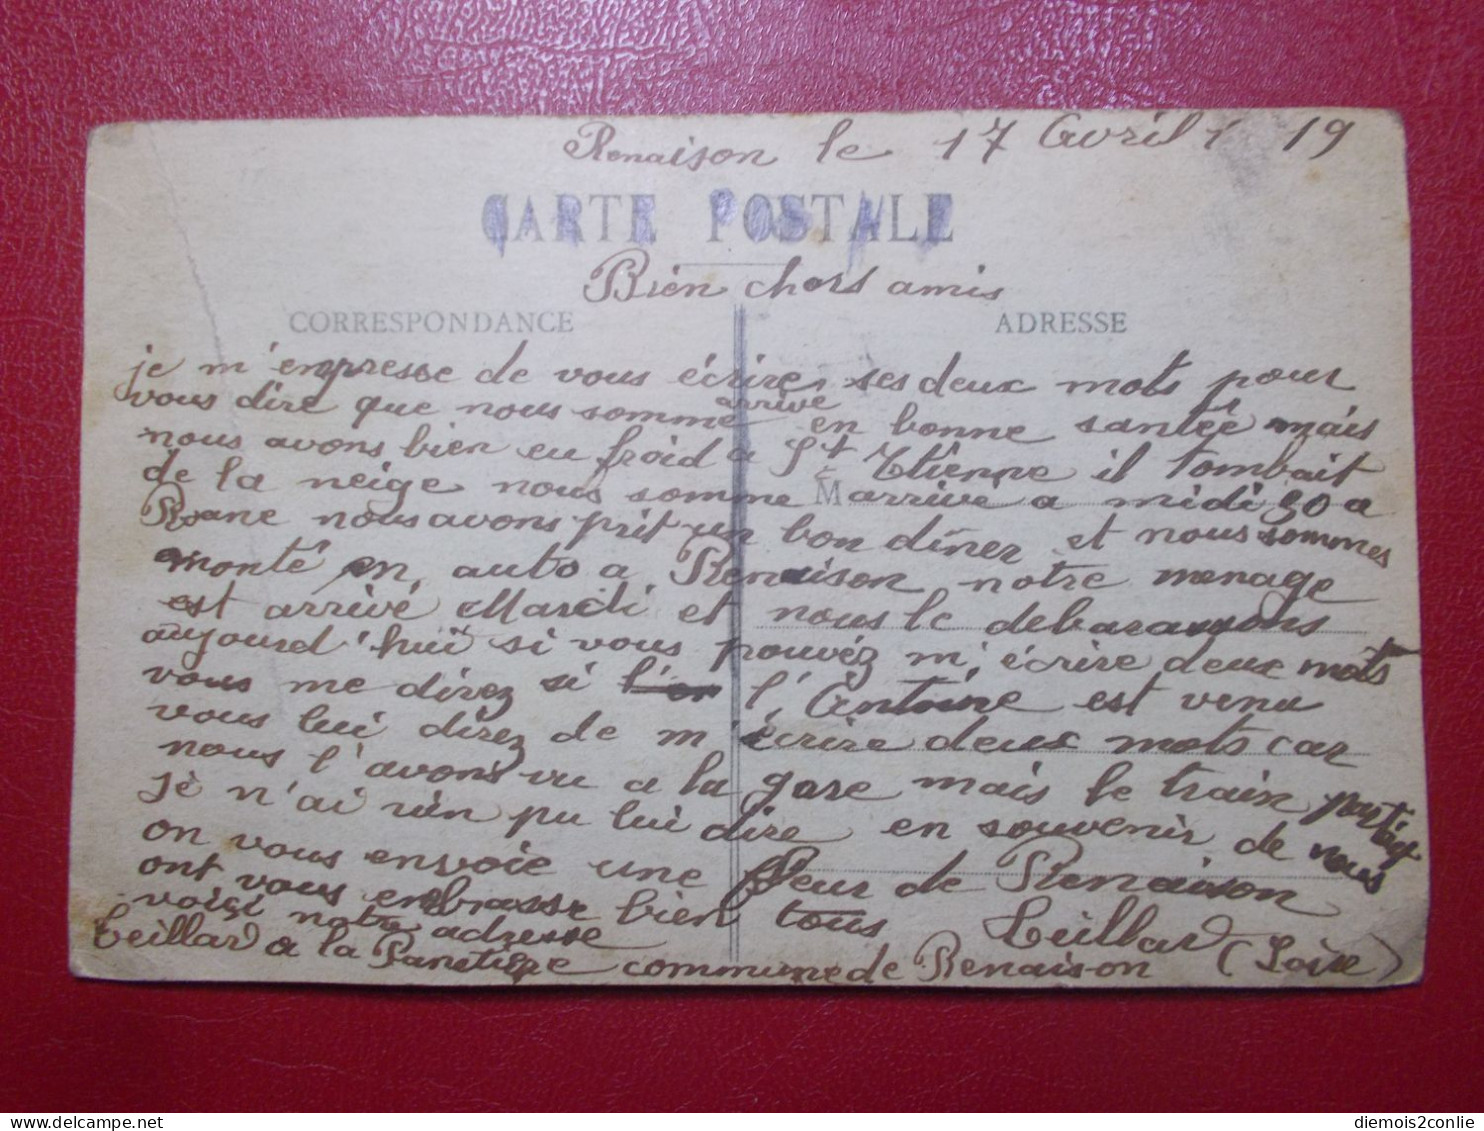 Renaison le 17 Avril 19
CARTE POSTALE
Bien chers amis
CORRESPONDANCE
ADRESSE
je m'empresse de vous écrire ses deux mots pour
vous dire que nous somme arrive en bonne santée mais
nous avons bien eu froid a St Etienne il tombait
de la neige nous somme arrive a midi 30 a
M
Roane nous avons prit un bon diner et nous sommes
monté en auto a Renaison notre menage
est arrivé Mardi et nous le debarassons
aujourd'hui si vous pouvéz m'écrire deux mots
vous me direz si l'on l'Antoine est venu
vous lui direz de m'écrire deux mots car
nous l'avons vu a la gare mais le train
je n'ai rien pu lui dire en souvenir de nous
on vous envoie une fleur de Renaison
ont vous enbrasse bien tous Teillard
voici notre adresse
Teillard a la Panetière commune de Renaison (Loire)
diemois2conlie